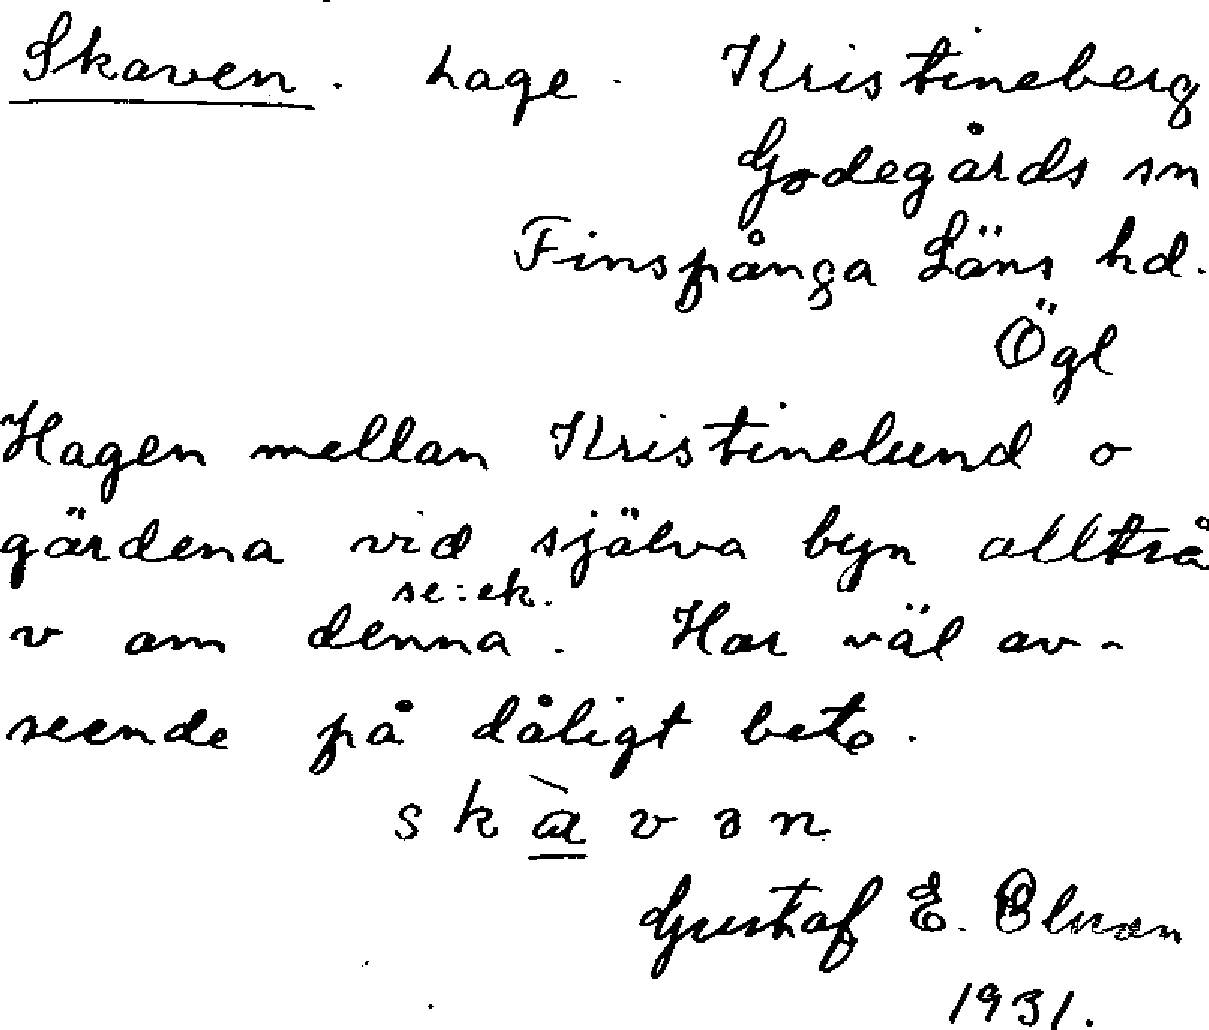 Skaven. hage. Kristineberg
Godegårds sn
Finspånga Läns hd.
Ögl
Hagen mellan Kristinelund o
gärdena vid själva byn alltså
se: ek.
v om denna. Har väl av-
seende på dåligt bete.
s k à v ə n
Gustaf E. Olsson
1931.